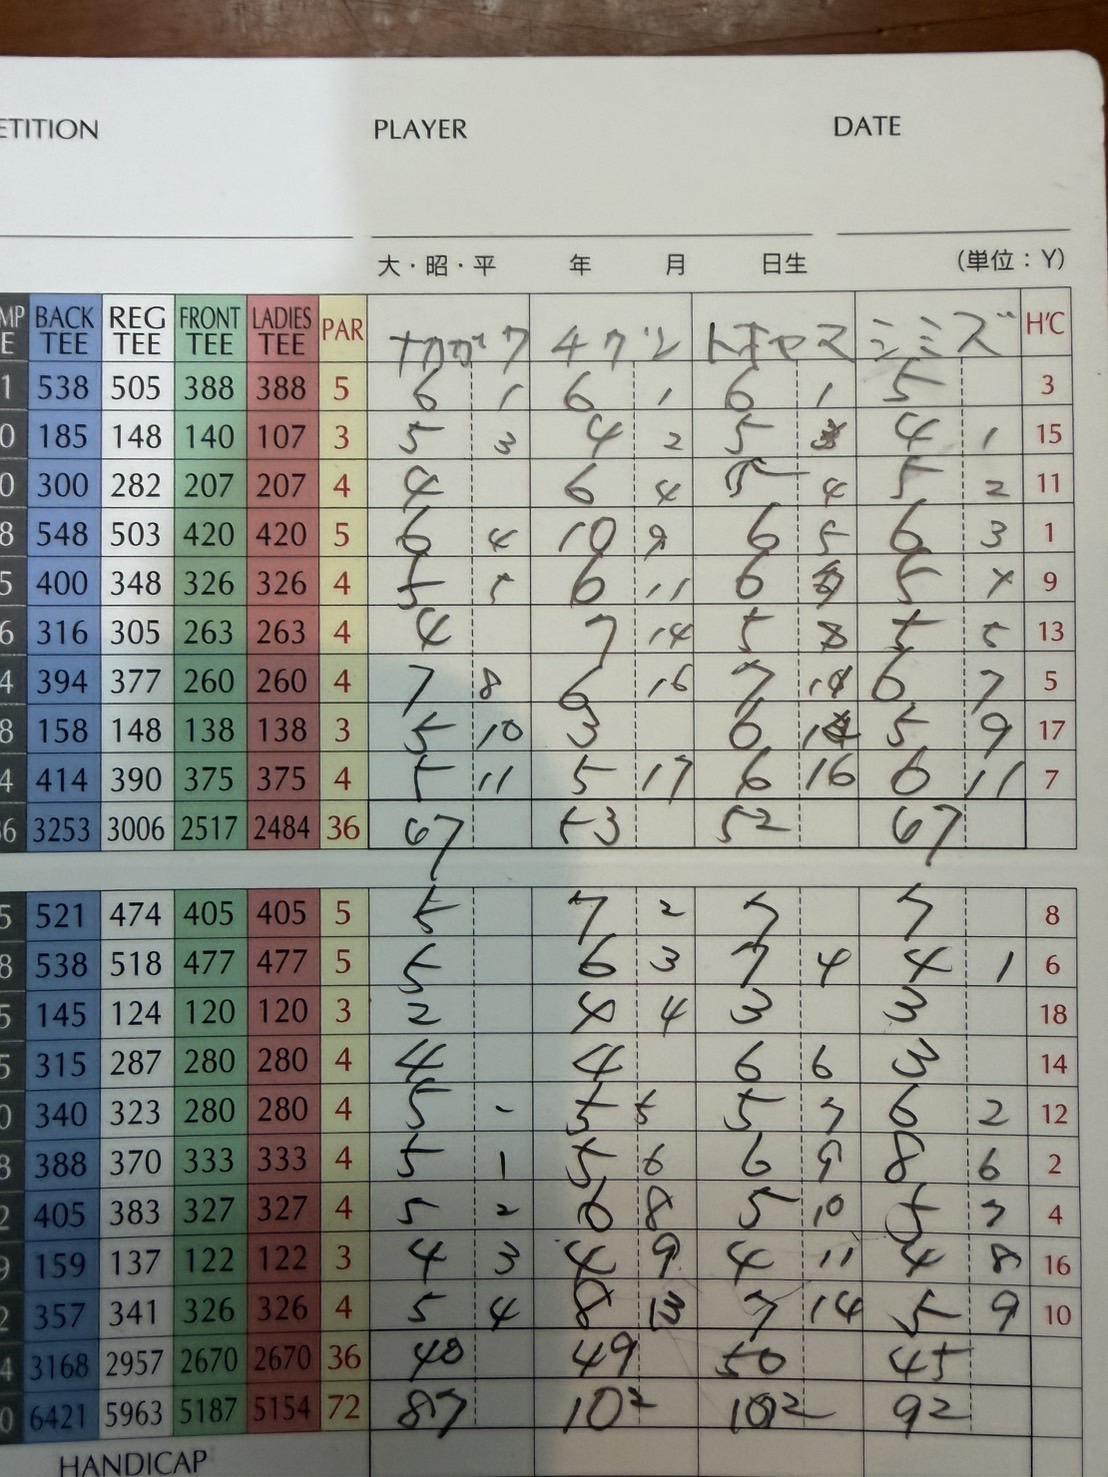 ETITION PLAYER DATE
大・昭・平 年 月 日生 (単位：Y)
MP E BACK TEE REG TEE FRONT TEE LADIES TEE PAR ナカガワ キクソ シミズ H'C
1 538 505 388 388 5 6 1 6 1 6 1 5 3
0 185 148 140 107 3 5 3 4 2 5 4 1 15
0 300 282 207 207 4 4 6 4 5 4 5 2 11
8 548 503 420 420 5 6 4 10 9 6 5 6 3 1
5 400 348 326 326 4 5 5 6 11 6 5 4 9
6 316 305 263 263 4 4 7 14 5 8 5 5 13
4 394 377 260 260 4 7 8 6 16 7 6 7 5
8 158 148 138 138 3 5 10 3 6 5 9 17
4 414 390 375 375 4 5 11 5 17 6 16 6 11 7
36 3253 3006 2517 2484 36 47 53 52 47
5 521 474 405 405 5 5 7 2 7 7 8
8 538 518 477 477 5 5 6 3 7 4 4 1 6
5 145 124 120 120 3 2 4 4 3 3 18
5 315 287 280 280 4 4 4 6 6 3 14
0 340 323 280 280 4 5 - 5 5 5 7 6 2 12
8 388 370 333 333 4 5 1 5 6 6 9 8 6 2
2 405 383 327 327 4 5 2 6 8 5 10 5 7 4
9 159 137 122 122 3 4 3 4 9 4 11 4 8 16
2 357 341 326 326 4 5 4 8 13 7 14 5 9 10
4 3168 2957 2670 2670 36 40 49 50 45
0 6421 5963 5187 5154 72 87 102 102 92
HANDICAP